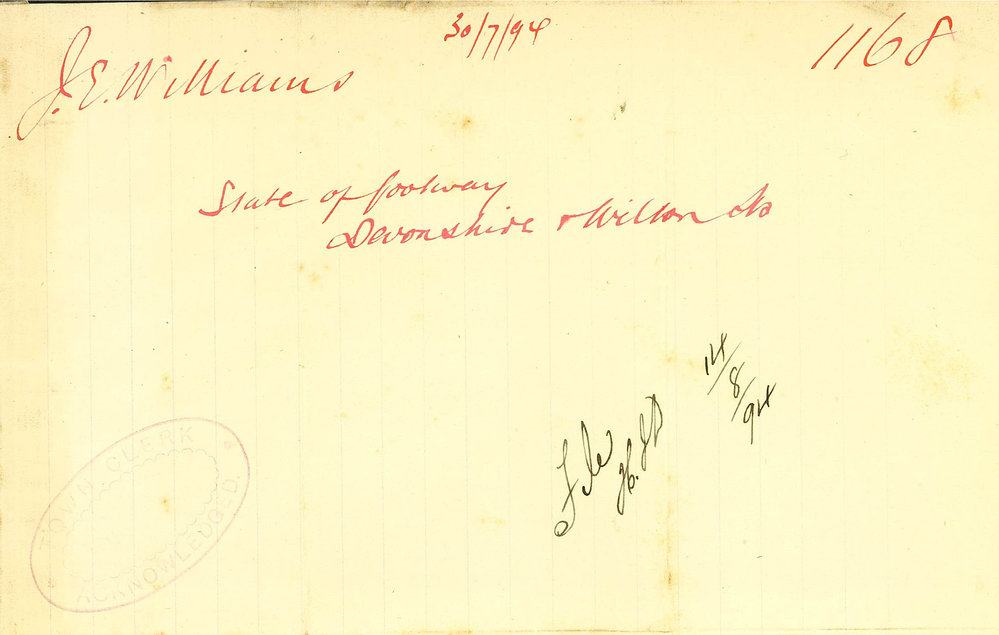 30/7/94
J. E. Williams
1168
State of footway
Devonshire & Wilton Sts
File
14/8/94
TOWN CLERK
ACKNOWLEDGED.